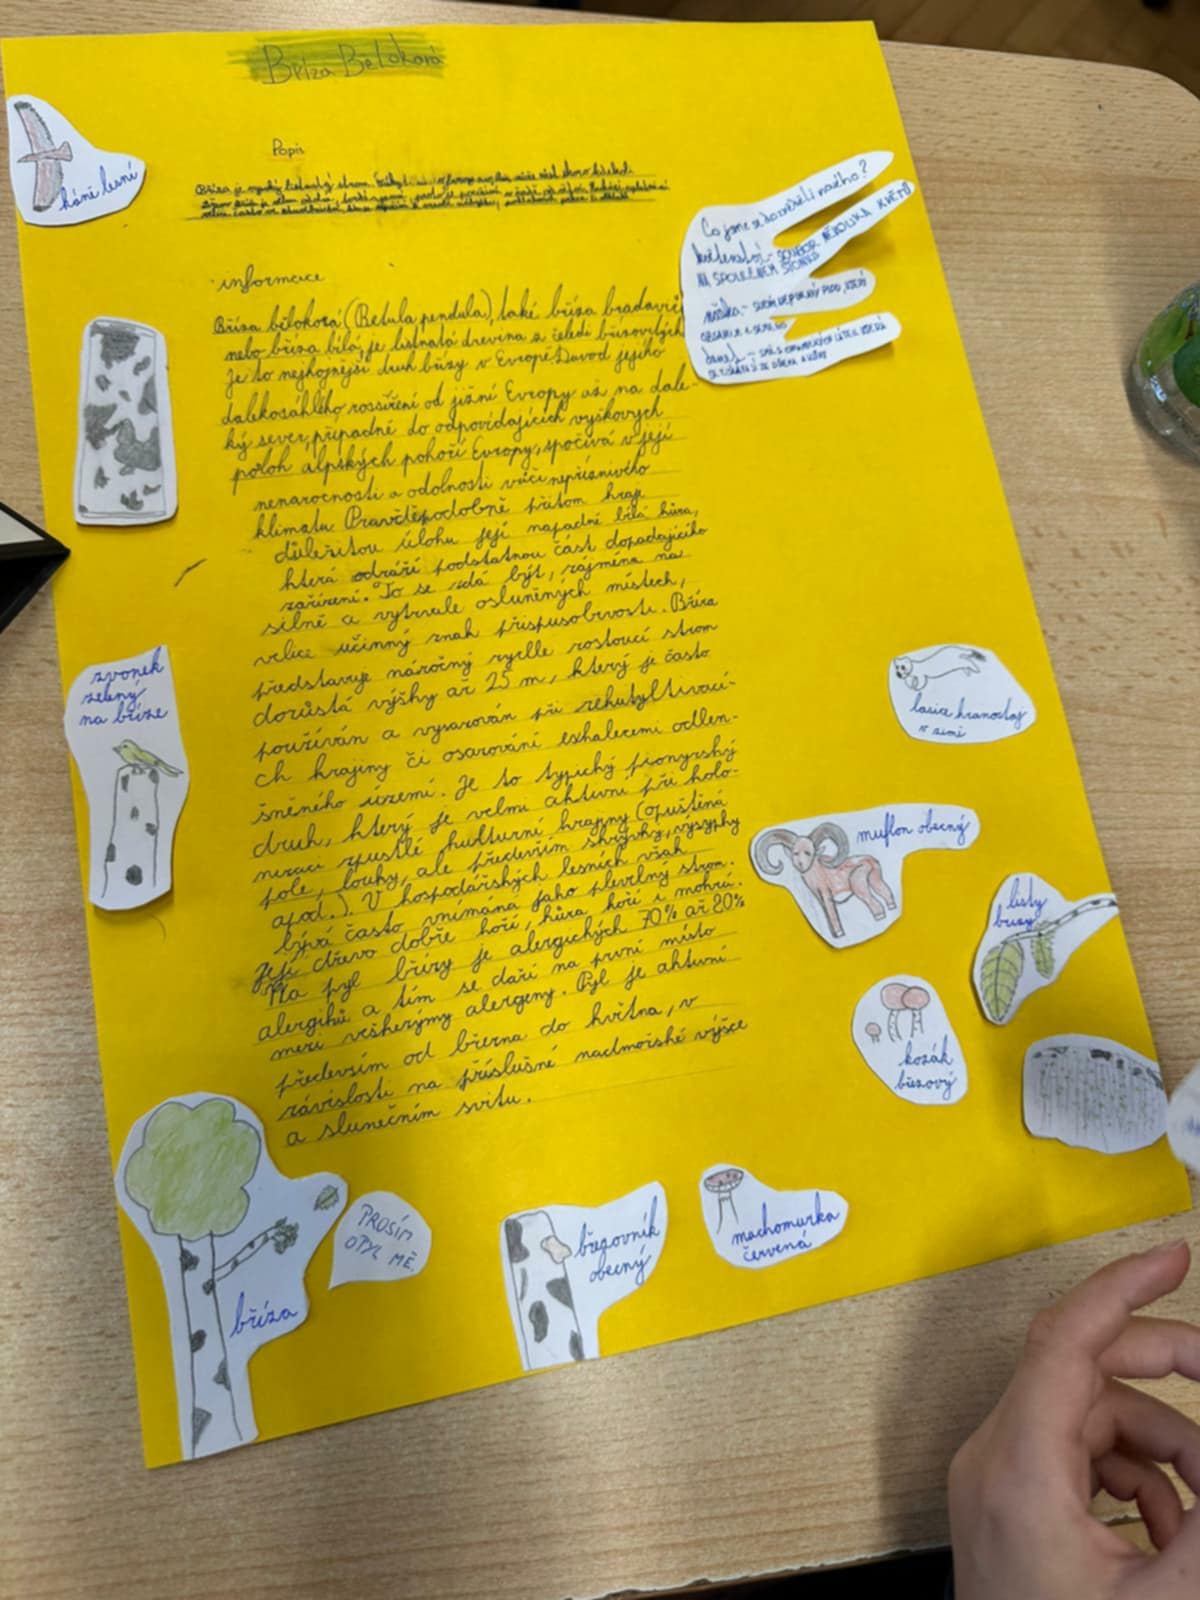 Bříza Bělokorá
Popis
káně lesní
Co jsme se dozvěděli nového?
květenství - SOUBOR NĚKOLIKA KVĚTŮ
NA SPOLEČNÉM STONKU
informace
Bříza bělokorá (Betula pendula), také bříza bradavič
nebo bříza bílá, je listnatá dřevina z čeledi břízovitých
Je to nejhojnější druh břízy v Evropě. Davod jejího
dalekosáhlého rozšíření od jižní Evropy až na dale-
ký sever, případně do odpovídajících výškových
poloh alpských pohoří Evropy, spočívá v její
nenáročnosti a odolnosti vůči nepříznivého
klimatu Pravděpodobně přitom hraje
důležitou úlohu její nápadně bílá kůra,
která odráží podstatnou část dopadajícího
zařízení. To se zdá být, zájména na
silně a vytrvale osluněných místech,
velice účinný znak přispusobivosti. Bříza
představuje náročný rychle rostoucí strom
dorůstá výšky až 25 m, který je často
používán a vysazován při rehutyltivací-
ch krajiny či osazování exhalecemi odlen-
šněného území. Je to typický pionyrský
druh, který je velmi aktivní při kolo-
nizaci zpustlé kulturní krajiny (opuštěná
pole, louky, ale především skrývky, výsypky
apod.). V hospodářských lesních však
bývá často vnímána jako plevelný strom.
Její dřevo dobře hoří, kůra hoří i mokrá.
Na pyl břízy je alergických 70% až 20%
alergiků a tím se daří na první místo
mezi veškerými alergeny. Pyl je aktivní
především od března do května, v
závislosti na příslušné nadmořské výšce
a slunečním svitu.
zvonek
zelený
na bříze
lasice hranostaj
v zimě
muflon obecný
listy
břízy
kozák
březový
bříza
PROSÍM
OTYL MĚ.
březovník
obecný
muchomurka
červená